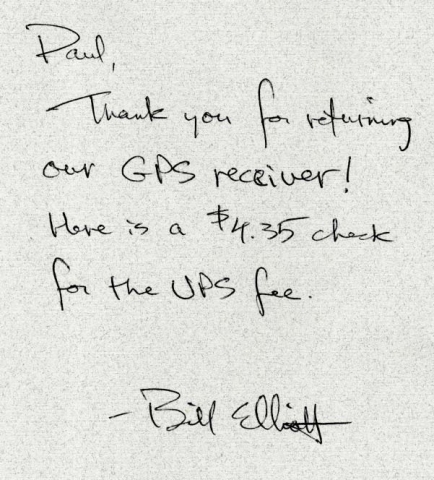 Paul,
Thank you for returning
our GPS receiver!
Here is a $4.35 check
for the UPS fee.
- Bill Elliott